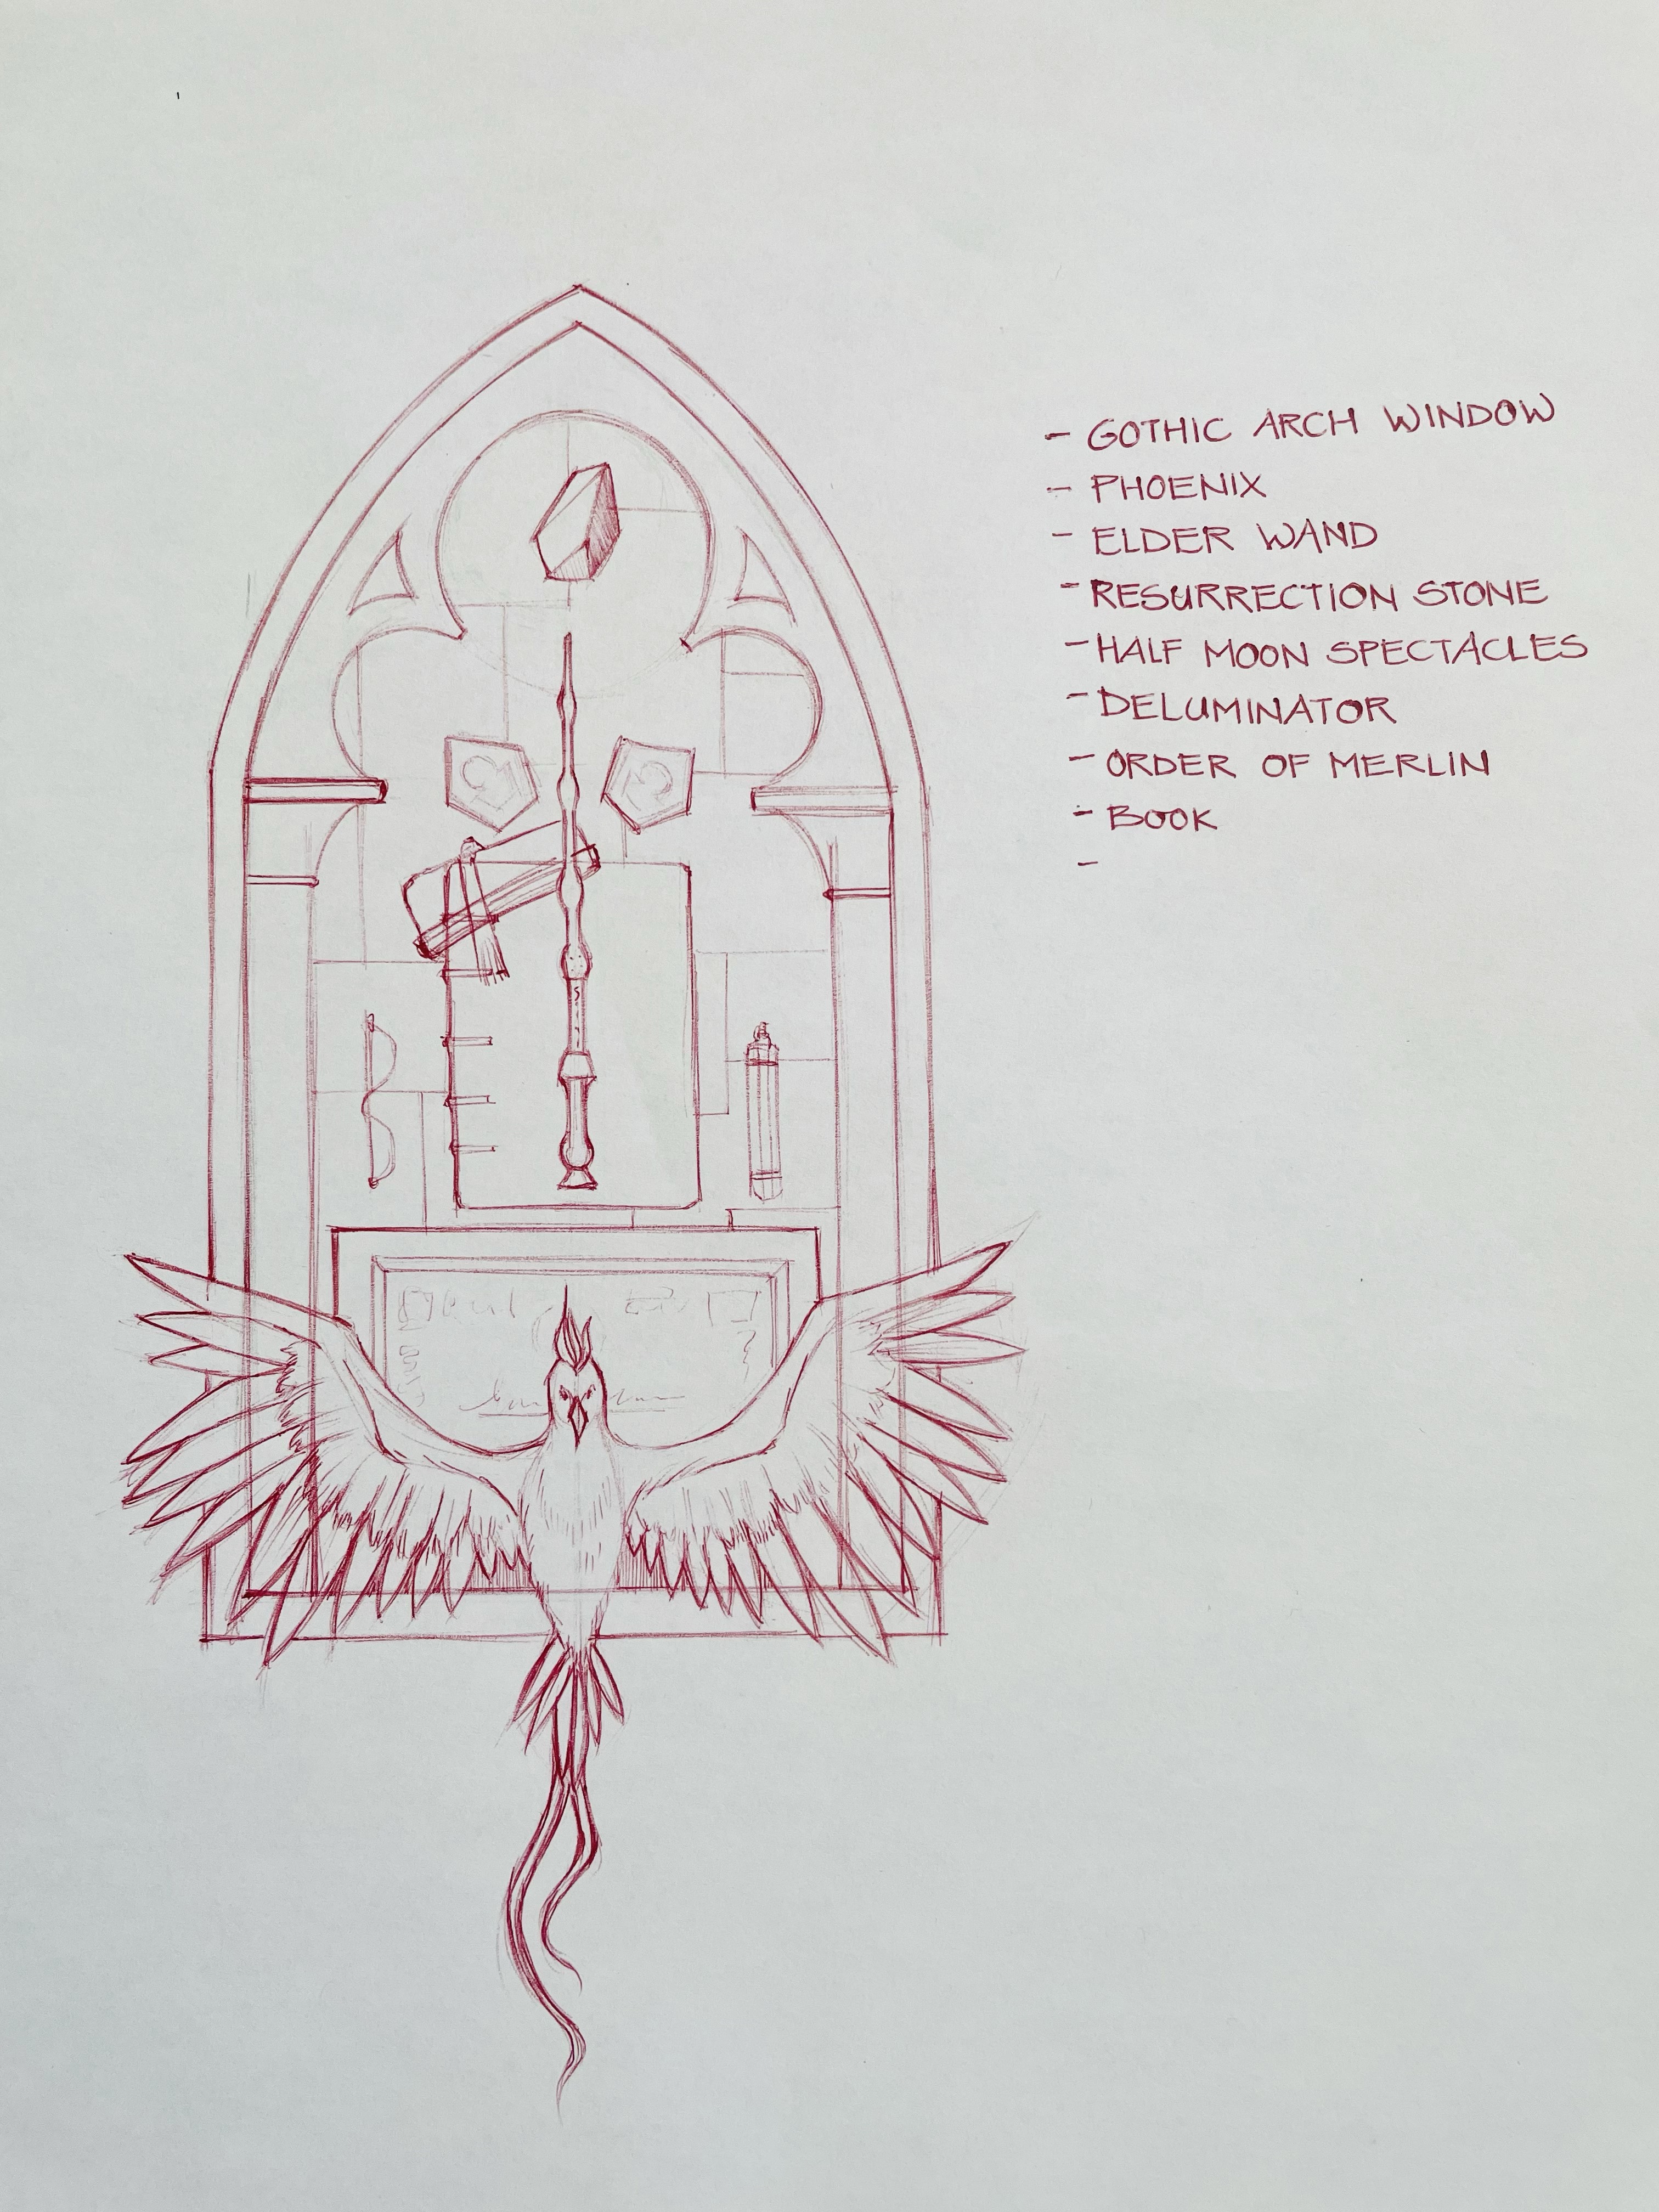 - GOTHIC ARCH WINDOW
- PHOENIX
- ELDER WAND
- RESURRECTION STONE
- HALF MOON SPECTACLES
- DELUMINATOR
- ORDER OF MERLIN
- BOOK
-